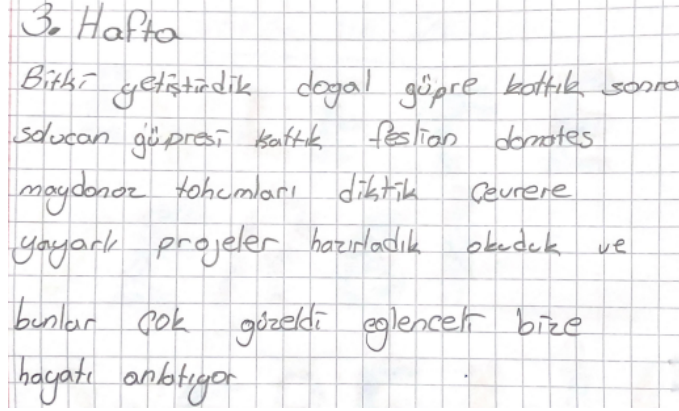 3. Hafta
Bitki yetiştirdik dogal güpre kattık sonra
solucan güpresi kattık feslian domates
maydonoz tohumları diktik Çevrere
yayarlı projeler hazırladık okuduk ve
bunlar çok güzeldi eglenceli bize
hayatı anlatıyor